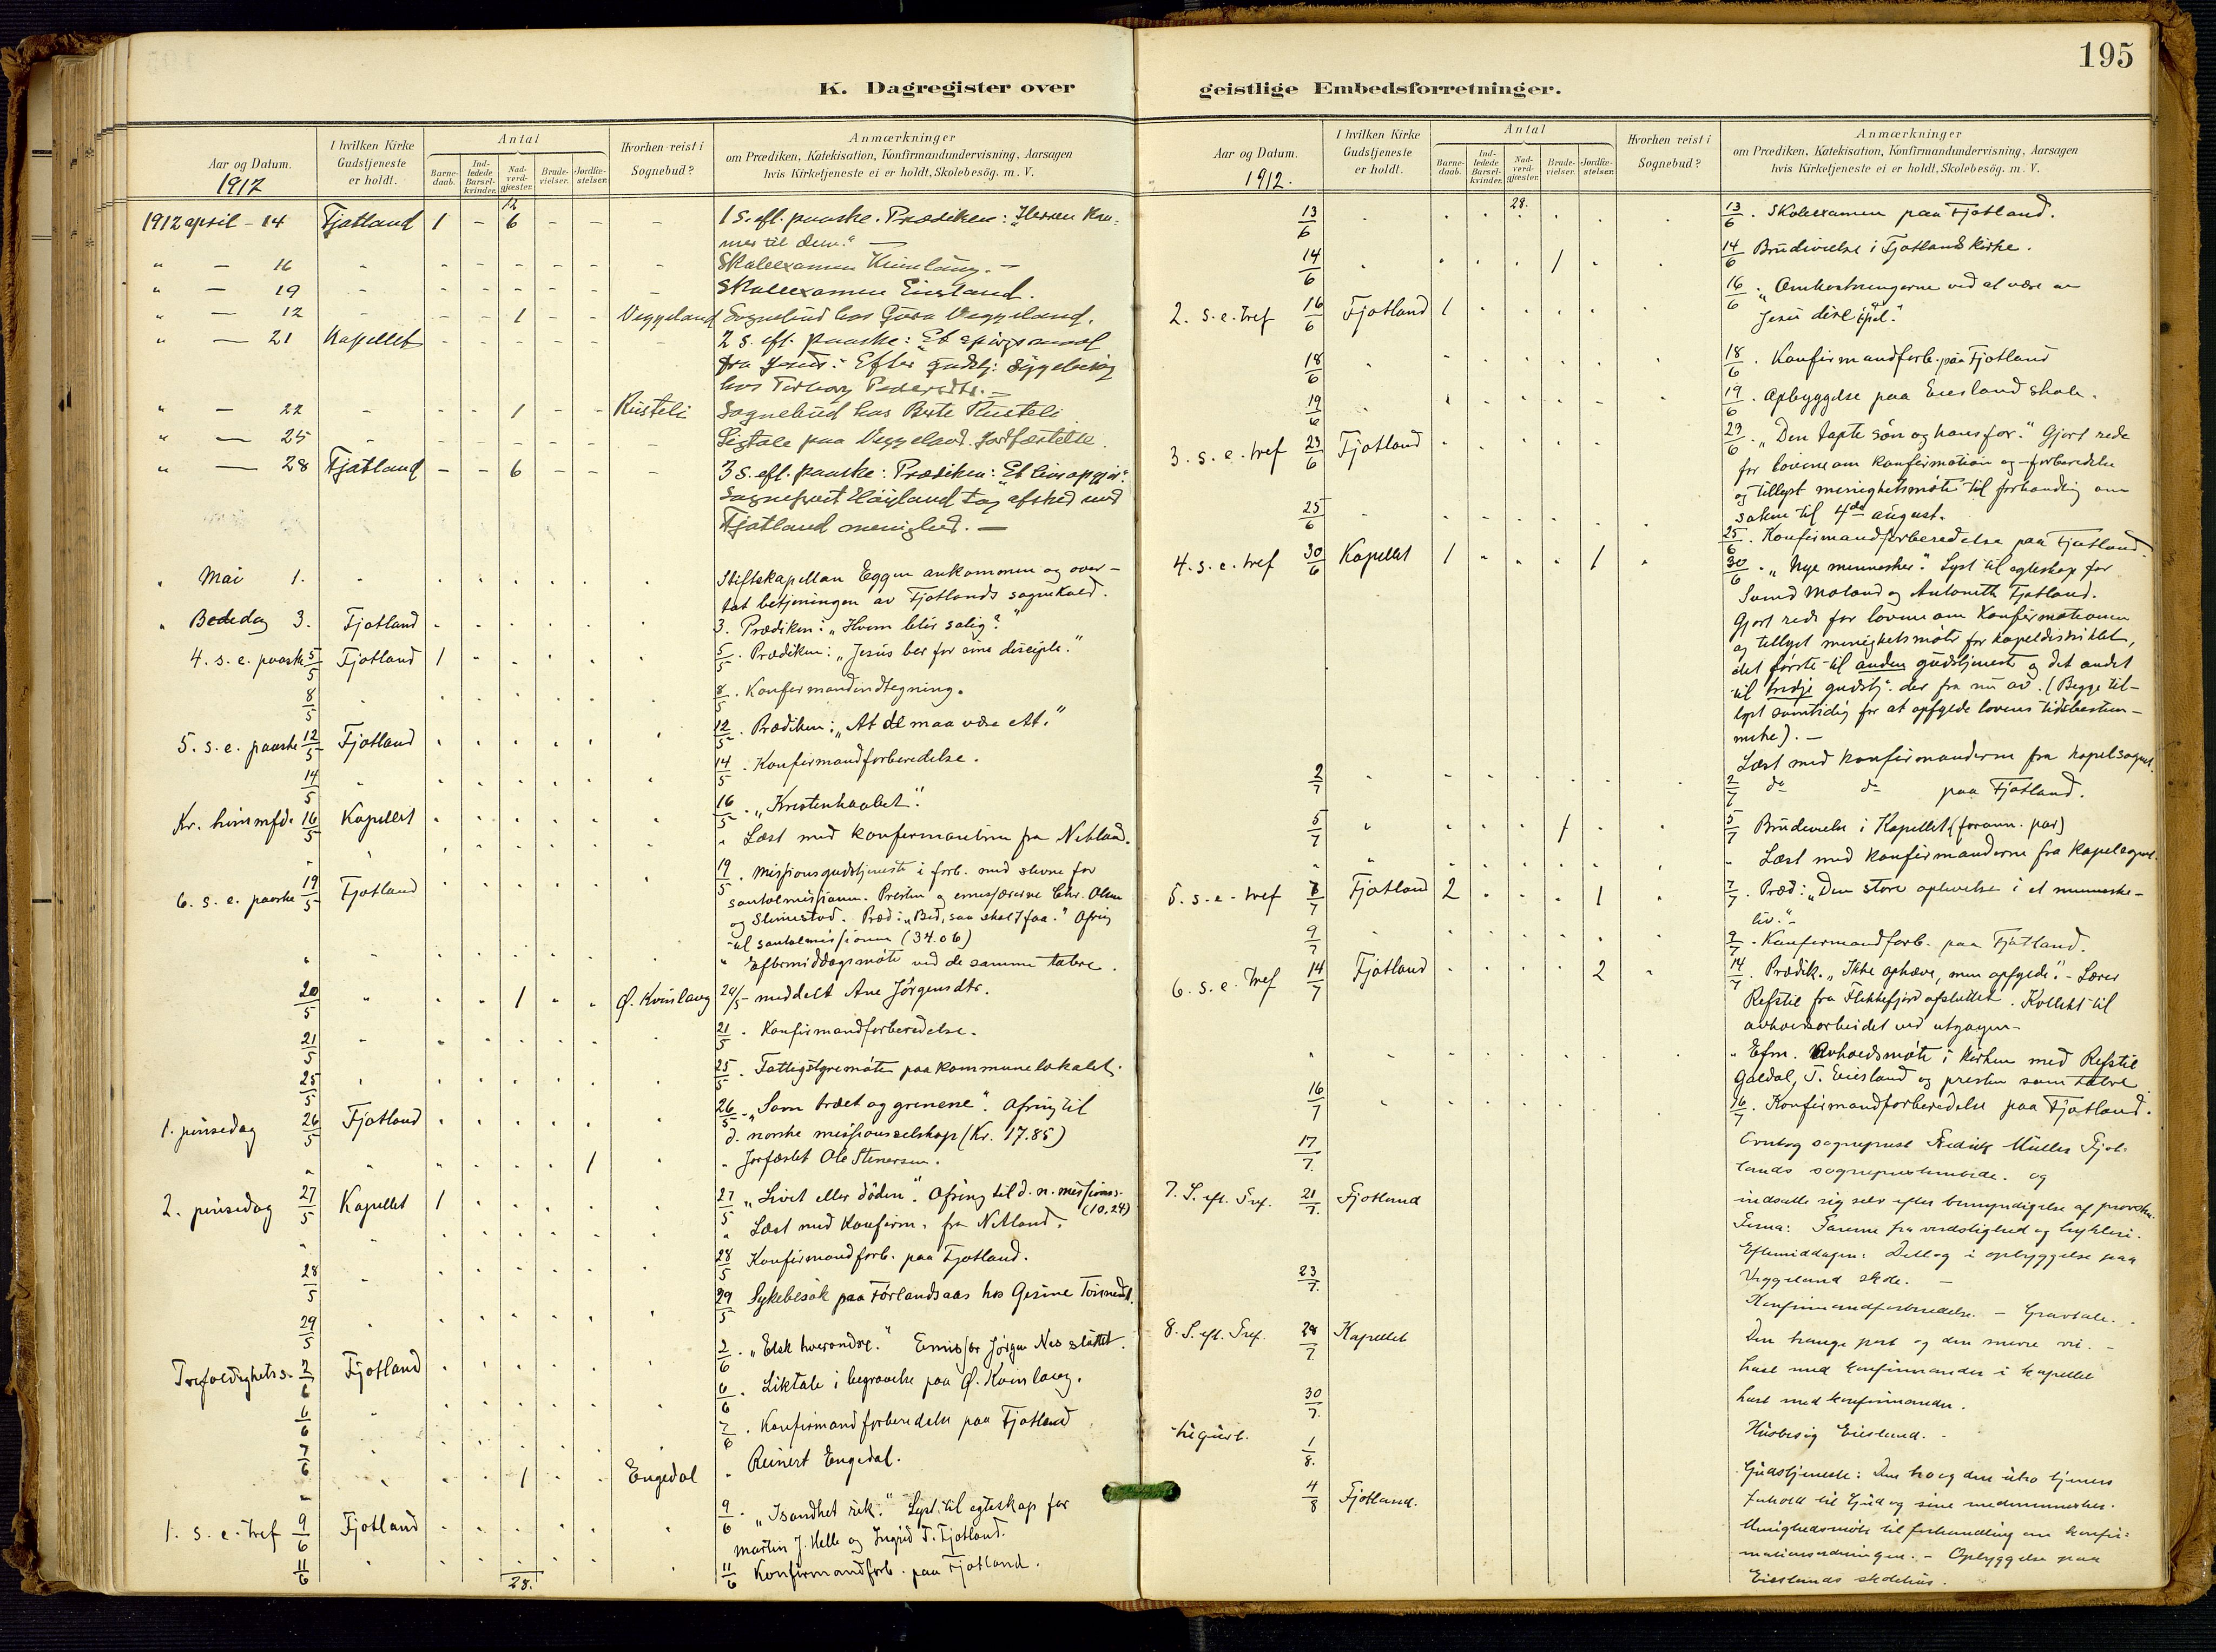 195
K. Dagregister over
geistlige Embedsforretninger.
Aar og Datum.
1912
I hvilken Kirke Gudstjeneste er holdt.
Antal
Barnedaab.
Indledede Barselkvinder.
Nadverdgjæster.
Brudevielser.
Jordfæstelser.
Hvorhen reist i Sognebud?
Anmærkninger
om Prædiken, Katekisation, Konfirmandundervisning, Aarsagen
hvis Kirketjeneste ei er holdt, Skolebesög. m. V.
12
1912 april - 14 Fjotland 1 - 6 - - - 1 S. eft. paaske. Prædiken: "Herren kom-
mer til dem." —
" — 16 - - - - - - - Skoleexamen Kvinlaug. —
" — 19 - - - - - - - Skoleexamen Eiesland.
" — 12 - - 1 - - Veggeland Sognebud hos Guro Veggeland.
" — 21 Kapellet - - - - - - 2 S. eft. paaske: Et spörgsmaal
fra Jesus: Efter gudstj. Sygebesög
hos Torborg Pedersdtr. —
" — 22 - - - 1 - - Rusteli Sognebud hos Berte Rusteli
" — 25 - - - - - - - Ligtale paa Veggeland. Jordfæstelse.
" — 28 Fjotland - - 6 - - - 3 S. eft. paaske: Prædiken: "Et livsopgjör."
Sogneprest Höyland tog afsked med
Fjotland menighed. —
" Mai 1. Stiftskapellan Eggen ankommen og over-
tat betjeningen av Fjotlands sognekald.
" Bededag 3. Fjotland 3. Prædiken: "Hvem blir salig?"
4. s. e. paaske 5/5 Fjotland 1 5/5. Prædiken: "Jesus ber for sine disciple."
8/5 8/5. Konfirmandindtegning.
5. s. e. paaske 12/5 Fjotland 12/5. Prædiken: "At de maa være ett."
14/5 14/5. Konfirmandforberedelse.
Kr. himmfd. 16/5 Kapellet 16/5. "Kristenhaabet."
" Læst med konfirmanterne fra Netland.
6. s. e. paaske 19/5 Fjotland 19/5. Missionsgudstjeneste i forb. med stevne for
santalmissionen. Presten og emissærerne Chr. Olsen
og Slimestad. Præd: "Bed, saa skal I faa." Ofring
til santalmissionen (34.06)
" Eftermiddagsmöte ved de samme talere.
20/5 1 Ø. Kvinlaug 20/5 - meddelt Ane Jörgensdtr.
21/5 21/5. Konfirmandforberedelse.
25/5 25/5. Fattigstyremöte paa kommunelokalet.
1. pinsedag 26/5 Fjotland 26/5. "Som træet og grenene". Ofring til
d. norske missionsselskap (Kr. 17.85)
" 1 " Jorfæstet Ole Stenersen.
2. pinsedag 27/5 Kapellet 1 27/5 "Livet eller döden". Ofring til d. n. missions.
(10,24)
" Læst med Konfirm. fra Netland.
28/5 28/5 Konfirmandforb. paa Fjotland.
29/5 29/5 Sykebesök paa Förlandsaas hos Gesine
Trefoldighetss. 2/6 Fjotland 2/6. "Elsk hverandre." Emissær Jörgen Nes sluttet.
6/6 6/6. Liktale i begravelse paa Ø. Kvinlaug.
7/6 7/6. Konfirmandforberedelse paa Fjotland
" 1 Engedal " Reinert Engedal.
1. s. e. tref 9/6 Fjotland 9/6. "Isandhet rik." Lyst til egteskap for
Martin J. Helle og Ingrid T. Fjotland.
11/6 11/6 Konfirmandforb. paa Fjotland.
28.
Aar og Datum.
1912.
I hvilken Kirke Gudstjeneste er holdt.
Antal
Barnedaab.
Indledede Barselkvinder.
Nadverdgjæster.
Brudevielser.
Jordfæstelser.
Hvorhen reist i Sognebud?
Anmærkninger
om Prædiken, Katekisation, Konfirmandundervisning, Aarsagen
hvis Kirketjeneste ei er holdt, Skolebesög. m. V.
28.
13/6 13/6. Skoleexamen paa Fjotland.
14/6 1 14/6 Brudevielse i Fjotland Kirke.
2. s. e. tref 16/6 Fjotland 1 16/6. "Omkostningerne ved at være en
Jesu disippel."
18/6 18/6. Konfirmandforb. paa Fjotland
19/6 19/6. Opbyggelse paa Eiesland skole.
3. s. e. tref 23/6 Fjotland 23/6. "Den tapte sön og hans far." Gjort rede
for lovene om konfirmation og -forberedelse
og tillyst menighetsmöte til forhandling om
saken til 4de august.
25/6 25/6. Konfirmandforberedelse paa Fjotland.
4. s. e. tref 30/6 Kapellet 1 1 30/6. "Nye mennesker". Lyst til egteskap for
Svend Moland og Antonette Fjotland.
Gjort rede for lovene om Konfirmationen
og tillyst menighetsmöte for Kapeldistriktet,
det förste til anden gudstjeneste og det andet
til tredje gudstj. der fra nu av. (Begge til-
lyst samtidig for at opfylde lovens tidsbestem-
melse). —
Læst med konfirmanderne fra Kapelsognet.
2/7 2/7 do do paa Fjotland.
5/7 1 5/7 Brudevielse i Kapellet (foran. par)
" Læst med konfirmanderne fra Kapelsognet.
5. s. e. tref 7/7 Fjotland 2 1 7/7. Præd: "Den store oplevelse i et menneske-
liv."
9/7 9/7. Konfirmandforb. paa Fjotland.
6. s. e. tref 14/7 Fjotland 2 14/7. Prædik. "Ikke ophæve, men opfylde." - Lærer
Refstie fra Flekkefjord afsluttet. Kollekt til
avholdsarbeidet ved utgangen.
" Efm. Avholdsmöte i kirken med Refstie
Galdal, T. Eiesland og presten som talere
16/7 16/7. Konfirmandforberedelse paa Fjotland.
17/7. Overtog sogneprest Fredrik Müller Fjot-
lands sogneprestembede. og
7. S. eft. Tref. 21/7. Fjotland indsatte sig selv efter bemyndigelse af provsten.
Tema: Farerne fra verdslighed og hykleri.
Eftermiddagen: Deltog i opbyggelse paa
Veggeland skole. —
23/7. Konfirmandforberedelse. — Gravtale.
8. S. eft. Tref. 28/7. Kapellet Den trange port og den smale vei. -
Læst med konfirmander i kapellet
30/7. Læst med konfirmander.
1/8. Husbesög Eiesland. -
4/8 Fjotland. Gudstjeneste: Den tro og den utro tjeners
forhold til Gud og sine medmennesker.
Menighedsmöte til forhandling om konfir-
mationsordningen. - Opbyggelse paa
Eieslands skolehus.